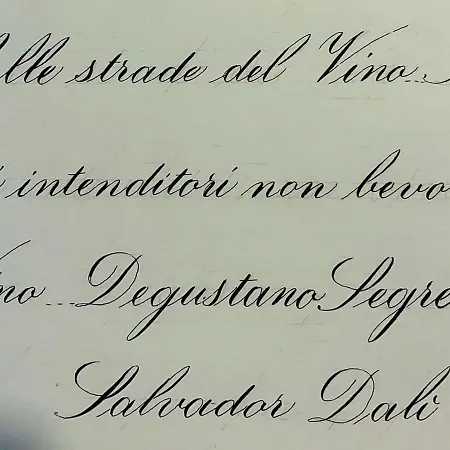 lle strade del Vino...
i intenditori non bevo
no ... Degustano Segre
Salvador Dalì